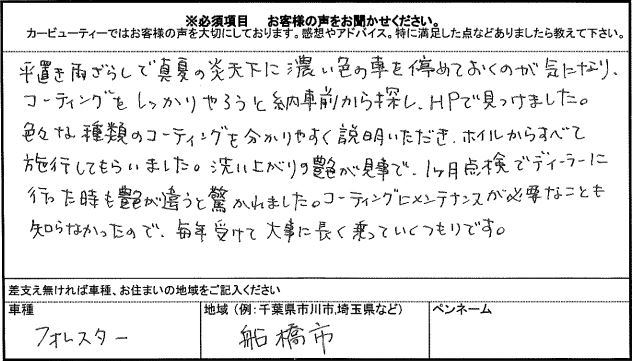 ※必須項目 お客様の声をお聞かせください。
カービューティーではお客様の声を大切にしております。感想やアドバイス。特に満足した点などありましたら教えて下さい。
平置き雨ざらしで真夏の炎天下に濃い色の車を停めておくのが気になり、
コーティングをしっかりやろうと納車前から探し、HPで見つけました。
色々な種類のコーティングを分かりやすく説明いただき、ホイルからすべて
施行してもらいました。洗い上がりの艶が見事で、1ヶ月点検でディーラーに
行った時も艶が違うと驚かれました。コーティングにメンテナンスが必要なことも
知らなかったので、毎年受けて大事に長く乗っていくつもりです。
差支え無ければ車種、お住まいの地域をご記入ください
車種 地域 (例:千葉県市川市,埼玉県など) ペンネーム
フォレスター 船橋市